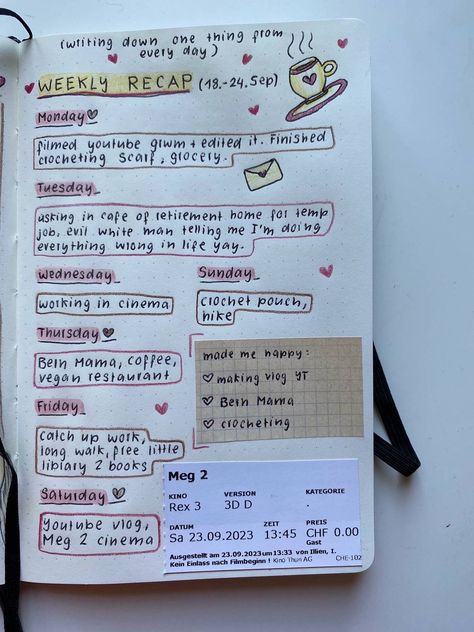 (writing down one thing from
every day)
WEEKLY RECAP (18.-24.Sep)
Monday
filmed youtube grwm + edited it. Finished
crocheting scarf, grocery.
Tuesday
asking in cafe of retirement home for temp
job, evil white man telling me I'm doing
everything wrong in life yay.
Wednesday
working in cinema
Sunday
crochet pouch,
hike
Thursday
Bern Mama, coffee,
vegan restaurant
made me happy:
♡ making vlog YT
♡ Bern Mama
♡ crocheting
Friday
catch up work,
long walk, free little
library 2 books
Saturday
Youtube vlog,
Meg 2 cinema
Meg 2
KINO VERSION KATEGORIE
Rex 3 3D D .
DATUM ZEIT PREIS
Sa 23.09.2023 13:45 CHF 0.00
Gast
Ausgestellt am 23.09.2023 um 13:33 von Illien, I.
Kein Einlass nach Filmbeginn ! Kino Thun AG CHE-102